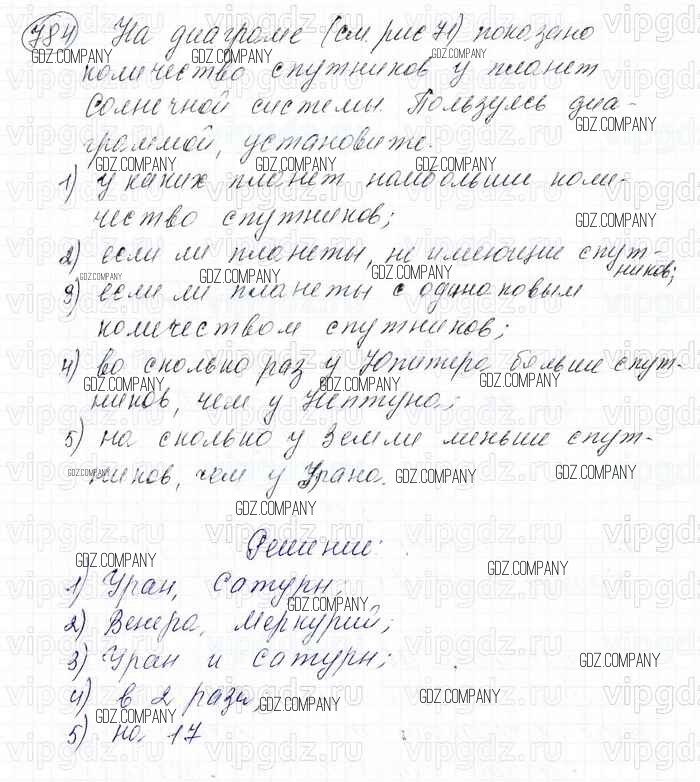 784 На диаграме (см. рис 71) показано
количество спутников у планет
Солнечной системы. Пользуясь диа-
граммой, установите.
1) у каких планет наибольши коли-
чество спутников;
2) если ли планеты, не имеющие спут-
ников;
3) если ли планеты с одинаковым
количеством спутников;
4) во сколько раз у Юпитера больше спут-
ников, чем у Нептуна;
5) на сколько у Земли меньше спут-
ников, чем у Урана.
Решение:
1) Уран, Сатурн;
2) Венера, Меркурий;
3) Уран и Сатурн;
4) в 2 раза;
5) на 17